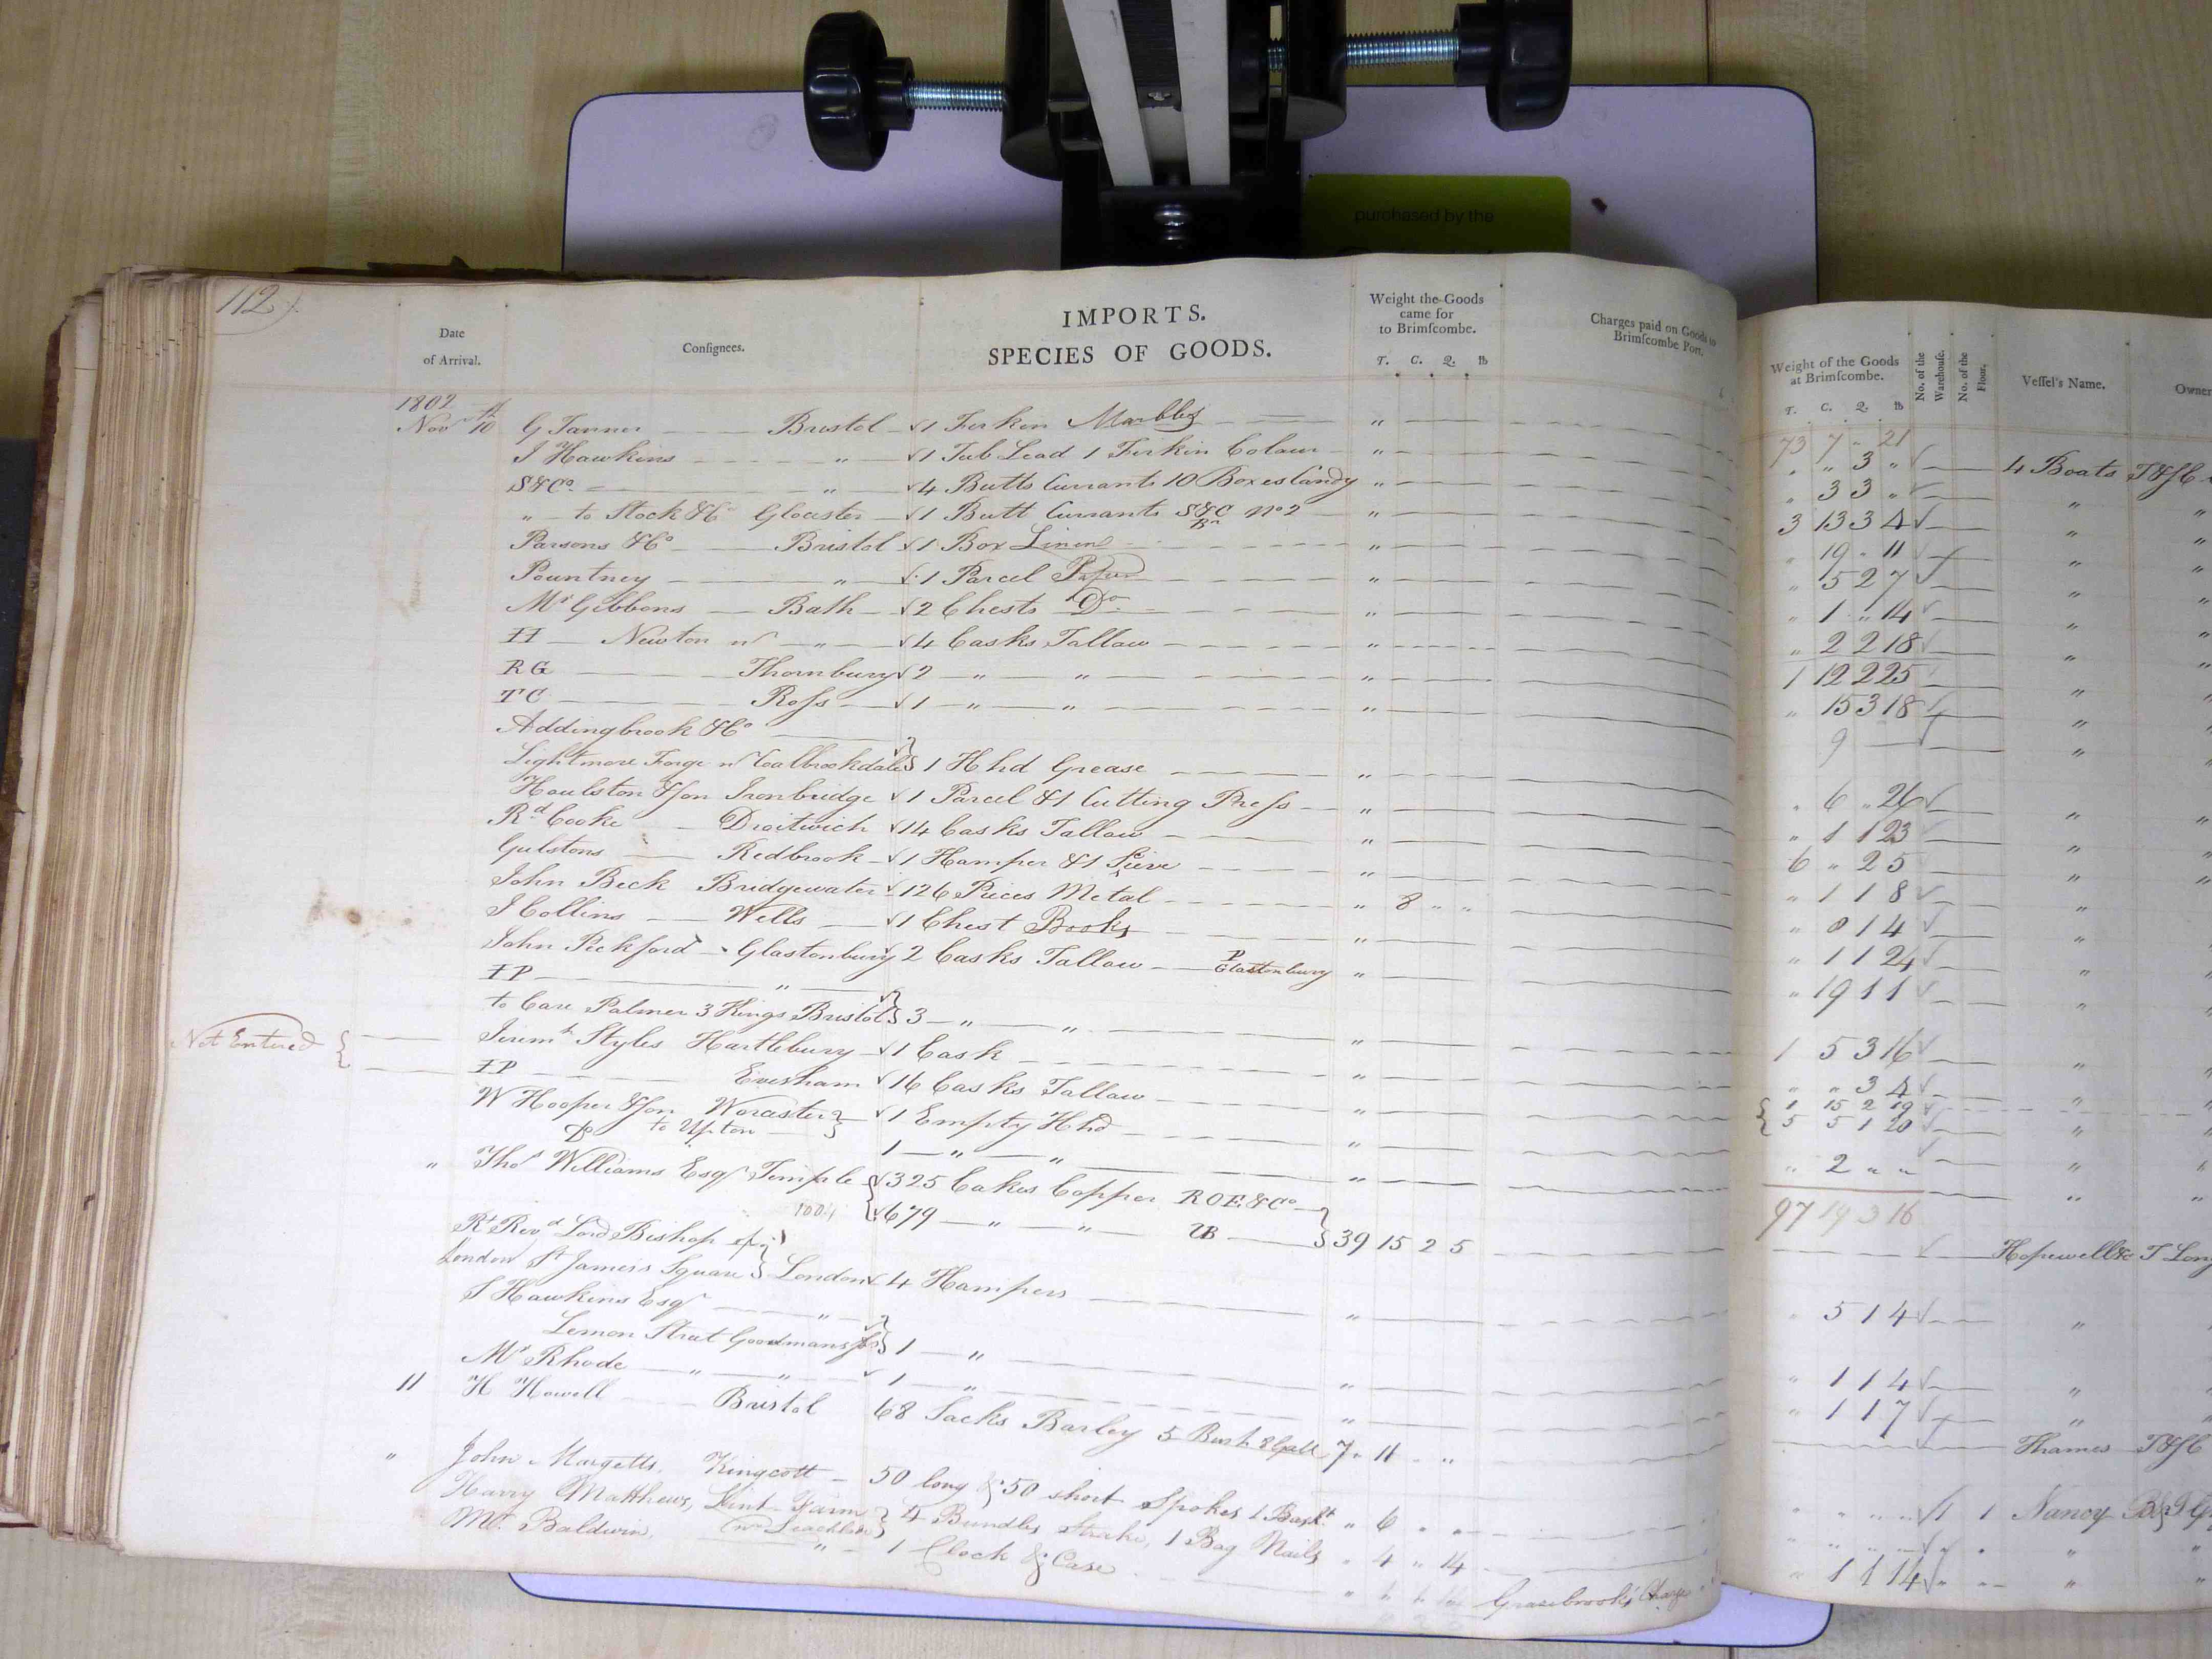 purchased by the
112
Date
of Arrival.
Consignees.
IMPORTS.
SPECIES OF GOODS.
Weight the Goods
came for
to Brimscombe.
T. C. Q. lb
Charges paid on Goods to
Brimscombe Port.
Weight of the Goods
at Brimscombe.
T. C. Q. lb
No. of the
Warehouse.
No. of the
Floor.
Vessel's Name.
Owner
73 7 " 21
1802
Nov 10th G Tanner Bristol 1 Firkin Marbles " " " 3 " 4 Boats T&JC
J Hawkins " 1 Tub Lead 1 Firkin Colour " " 3 3 " "
S&Co " 4 Butts Currants 10 Boxes Candy " 3 13 3 4 "
" to Stock &Co Glocester 1 Butt Currants S&C No 2 " " 19 " 11 "
Parsons &Co Bristol 1 Box Linen " " 5 2 7 "
Pountney " 1 Parcel Paper " " 1 " 14 "
Mr Gibbons Bath 2 Chests Do " " 2 2 18 "
II Newton nr " 4 Casks Tallow " 1 12 2 25 "
RG Thornbury 2 " " " " 15 3 18 "
TC Ross 1 " " " 9 "
Addingbrook &Co
Lightmore Forge nr Coalbrookdale 1 Hhd Grease " " 6 " 26 "
Houlston & Son Ironbridge 1 Parcel &1 Cutting Press " " 1 1 23 "
Rd Cooke Droitwich 14 Casks Tallow " 6 " 2 5 "
Gulstons Redbrook 1 Hamper &1 Sieve " " 1 1 8 "
John Beck Bridgewater 126 Pieces Metal " 8 " " " 0 1 4 "
J Collins Wells 1 Chest Books " " 1 1 24 "
John Peckford Glastonbury 2 Casks Tallow P Glastonbury " " 19 1 1 "
IP "
to Care Palmer 3 Kings Bristol 3 " " " 1 5 3 16 "
Not Entered
Jeremh Styles Hartlebury 1 Cask " " " 3 4 "
IP Evesham 16 Casks Tallow " 1 15 2 19
5 5 1 20 "
W Hooper & Son Worcester 1 Empty Hhd " " 2 " " "
Do to Upton 1 " " " "
97 19 3 16
" Thos Williams Esqr Temple 325 Cakes Copper ROE&Co
1004 679 " " 39 15 2 5 Hopewell&c T Long
Rt Revd Lord Bishop of
London St James's Square London 4 Hampers " " 5 1 4 "
S Hawkins Esqr "
Lemon Street Goodmans 1 " " " 1 1 4 "
Mr Rhode " " 1 " " " 1 1 7 "
11 H Howell Bristol 68 Sacks Barley 5 Bush 8 Gall 7 " 11 " " Thames T&JC
" John Margetts, Kingcott 50 long & 50 short Spokes 1 Baskt " 6 " " " " " " 1 1 Nancy
Harry Matthews, Lint Farm 4 Bundles Streaks, 1 Bag Nails " 4 " 14 "
Mr. Baldwin, " 1 Clock & Case Grasebrook's Charge " 1 1 14 "